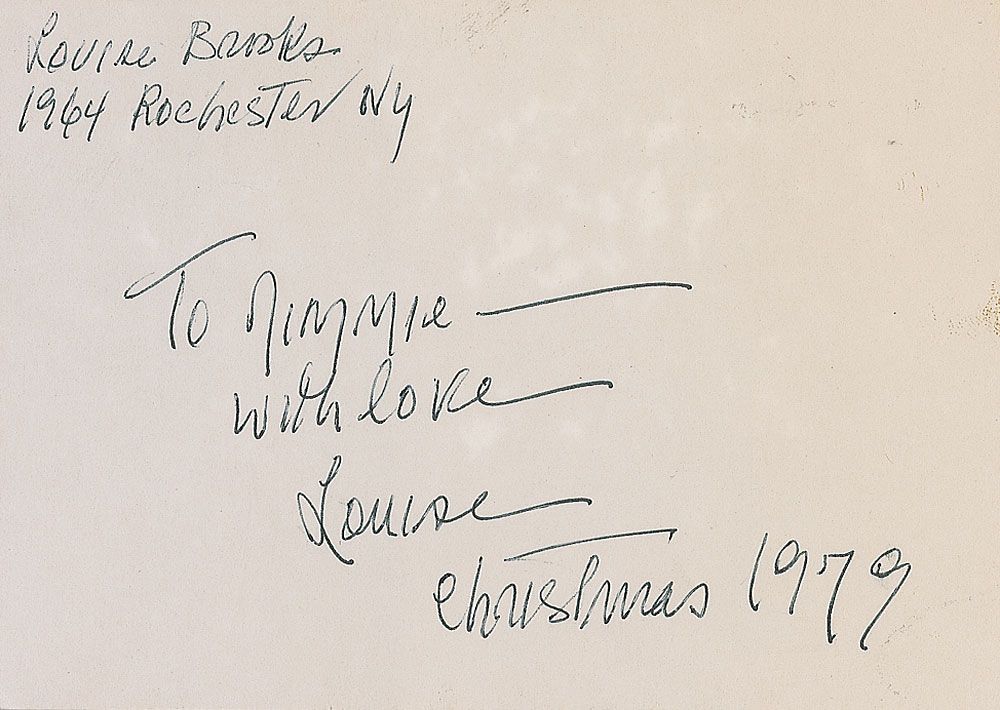 Louise Brooks
1964 Rochester NY
To Jimmie —
with love
Louise
Christmas 1979